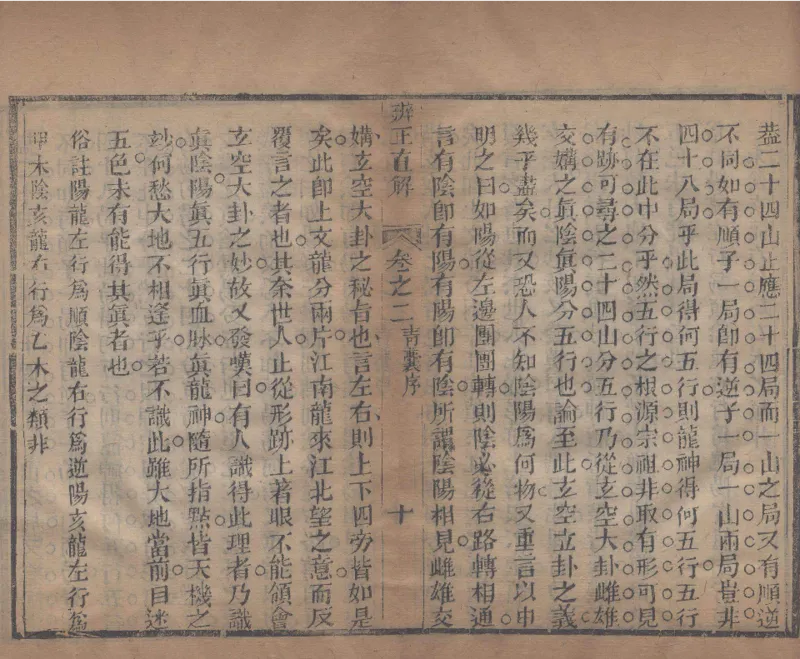 葢二十四山止應二十四局而一山之局又有順逆
不同如有順子一局卽有逆子一局一山兩局豈非
四十八局乎此局得何五行則龍神得何五行五行
不在此中分乎然五行之根源宗祖非取有形可見
有跡可尋之二十四山分五行乃從玄空大卦雌雄
交媾之眞陰眞陽分五行也論至此玄空立卦之義
幾乎盡矣而又恐人不知陰陽爲何物又重言以申
明之曰如陽從左邊團團轉則陰必從右路轉相通
言有陰卽有陽有陽卽有陰所謂陰陽相見雌雄交
辨正直解 卷之二 青囊序 十
媾玄空大卦之秘旨也言左右則上下四旁皆如是
矣此卽上文龍分兩片江南龍來江北望之意而反
覆言之者也其奈世人止從形跡上著眼不能領會
玄空大卦之妙故又發嘆曰有人識得此理者乃識
眞陰陽眞五行眞血脉眞龍神隨所指點皆天機之
妙何愁大地不相逢乎若不識此雖大地當前目迷
五色未有能得其眞者也
俗註陽龍左行爲順陰龍右行爲逆陽亥龍左行爲
甲木陰亥龍右行爲乙木之類非